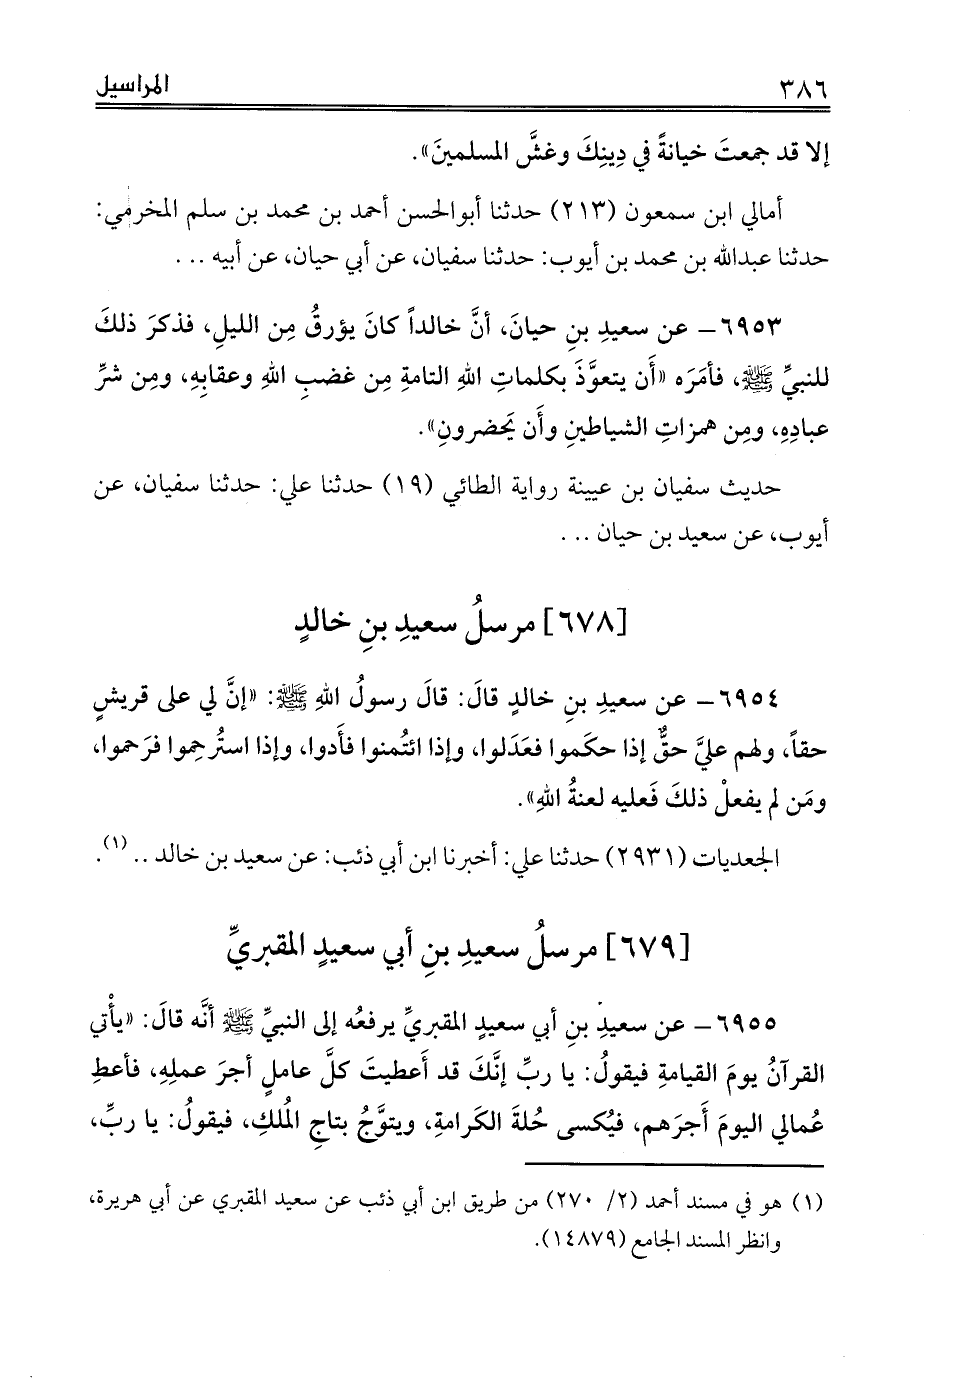 ٣٨٦
المراسيل
إلا قد جمعتَ خيانةً في دِينِكَ وغشَّ المسلمينَ».
أمالي ابن سمعون (٢١٣) حدثنا أبوالحسن أحمد بن محمد بن سلم المخرمي:
حدثنا عبدالله بن محمد بن أيوب: حدثنا سفيان، عن أبي حيان، عن أبيه ...
٦٩٥٣ – عن سعيدِ بنِ حيانَ، أنَّ خالداً كانَ يؤرقُ مِن الليلِ، فذكرَ ذلكَ
للنبيِّ ﷺ، فأمَرَه «أَن يتعوَّذَ بكلماتِ اللهِ التامةِ مِن غضبِ اللهِ وعقابِهِ، ومِن شرِّ
عبادِهِ، ومِن همزاتِ الشياطينِ وأَن يَحضرونِ».
حديث سفيان بن عيينة رواية الطائي (١٩) حدثنا علي: حدثنا سفيان، عن
أيوب، عن سعيد بن حيان ...
[٦٧٨] مرسلُ سعيدِ بنِ خالدٍ
٦٩٥٤ – عن سعيدِ بنِ خالدٍ قالَ: قالَ رسولُ اللهِ ﷺ: «إنَّ لي على قريشٍ
حقاً، ولهم عليَّ حقٌّ إذا حكَموا فعَدَلوا، وإذا ائتُمنوا فأَدوا، وإذا استُرحِموا فرَحموا،
ومَن لم يفعلْ ذلكَ فَعليه لعنةُ اللهِ».
الجعديات (٢٩٣١) حدثنا علي: أخبرنا ابن أبي ذئب: عن سعيد بن خالد .. (١).
[٦٧٩] مرسلُ سعيدِ بنِ أبي سعيدٍ المقبريِّ
٦٩٥٥ – عن سعيدِ بنِ أبي سعيدٍ المقبريِّ يرفعُه إلى النبيِّ ﷺ أنَّه قالَ: «يأْتي
القرآنُ يومَ القيامةِ فيقولُ: يا ربِّ إنَّكَ قد أَعطيتَ كلَّ عاملٍ أجرَ عملِهِ، فأعطِ
عُمالي اليومَ أَجرَهم، فيُكسى حُلةَ الكرامةِ، ويتوَّجُ بتاجِ المُلكِ، فيقولُ: يا ربِّ،
(١) هو في مسند أحمد (٢/ ٢٧٠) من طريق ابن أبي ذئب عن سعيد المقبري عن أبي هريرة،
وانظر المسند الجامع (١٤٨٧٩).